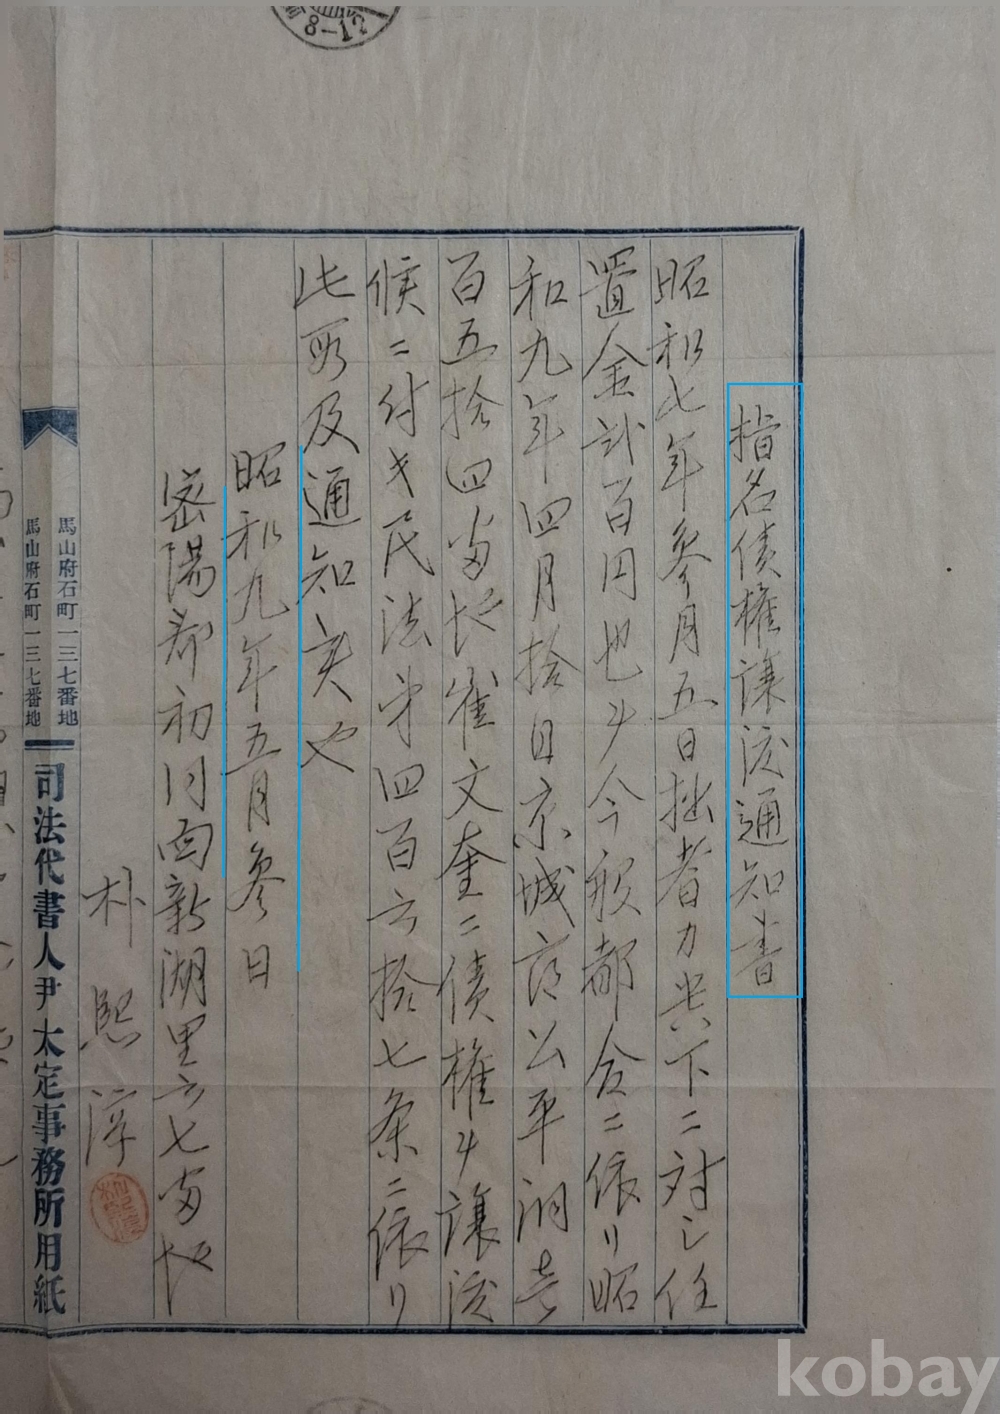 指名債権譲渡通知書
昭和七年参月五日拙者カ貴下ニ対シ任
置金弐百円也ヲ今般都合ニ依リ昭
和九年四月拾日京城府公平洞壱
百五拾四番地崔文奎ニ債権ヲ譲渡
候ニ付キ民法第四百六拾七条ニ依リ
此段及通知候也
昭和九年五月参日
密陽郡初同面新湖里六七番地
朴熙淳
馬山府石町一三七番地
馬山府石町一三七番地
司法代書人尹太定事務所用紙
8-12
kobay